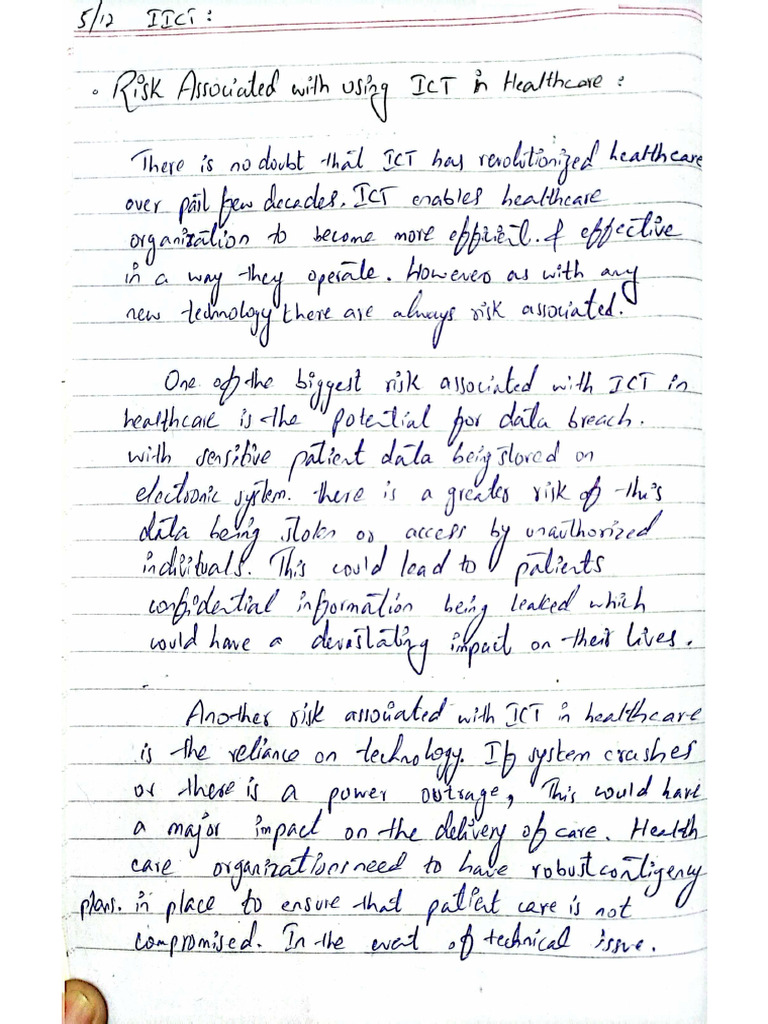 5/12 IICT:
• Risk Associated with using ICT in Healthcare:
There is no doubt that ICT has revolutionized healthcare
over past few decades. ICT enables healthcare
organization to become more efficient & effective
in a way they operate. However as with any
new technology there are always risk associated.
One of the biggest risk associated with ICT in
healthcare is the potential for data breach.
with sensitive patient data being stored on
electronic system. there is a greater risk of this
data being stolen or access by unauthorized
individuals. This could lead to patients
confidential information being leaked which
would have a devastating impact on their lives.
Another risk associated with ICT in healthcare
is the reliance on technology. If system crashes
or there is a power outrage, This would have
a major impact on the delivery of care. Health
care organizations need to have robust contigency
plans. in place to ensure that patient care is not
compromised. In the event of technical issue.